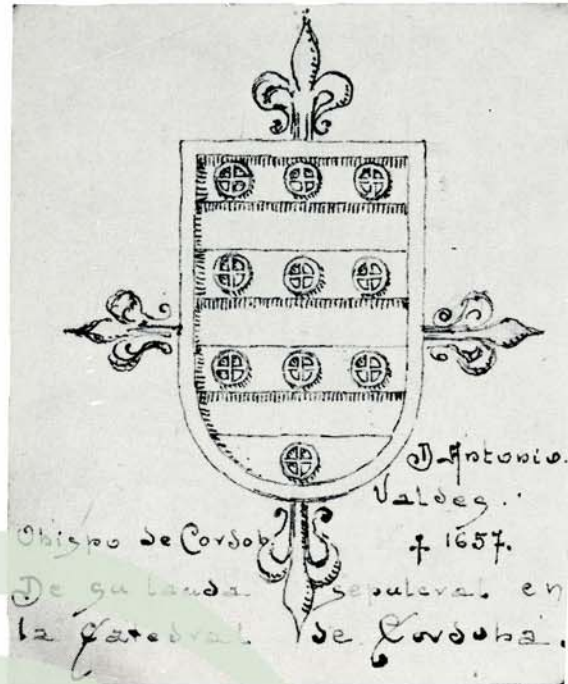 D. Antonio.
Valdes.
Obispo de Cordob.
† 1657.
De su lauda sepulcral en
la Catedral de Cordoba.